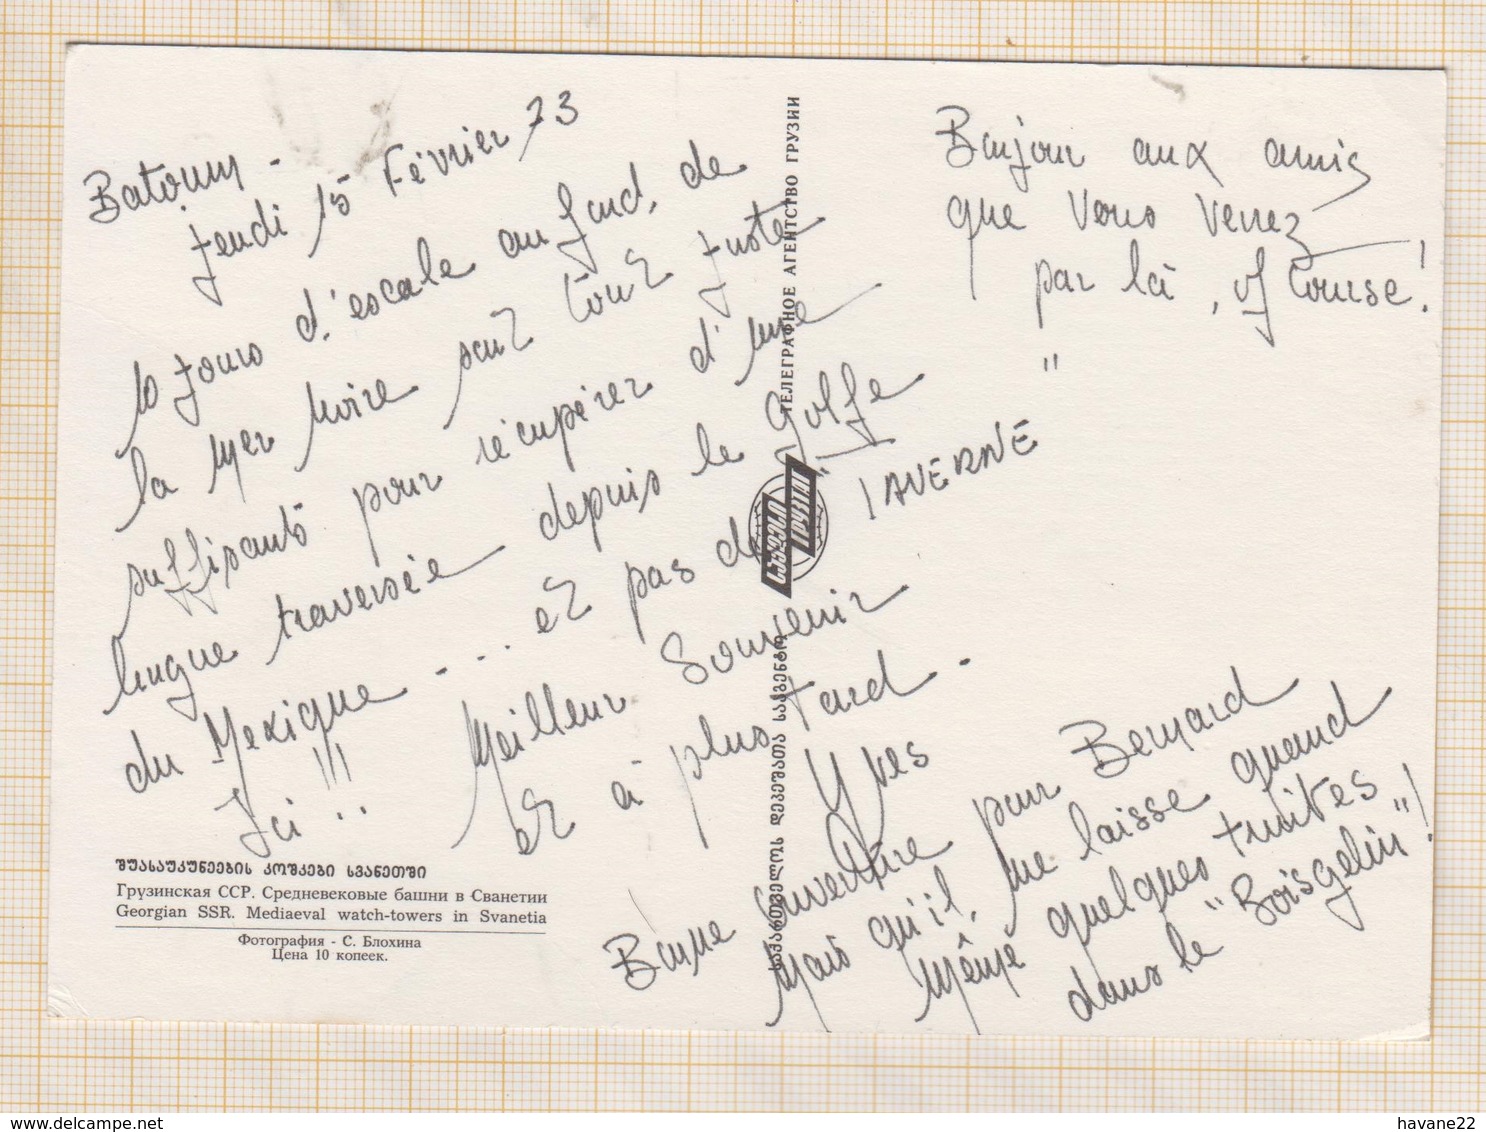 Batoum -
Jeudi 15 Février 73
10 jours d'escale au fond de
la Mer Noire sont tout juste
suffisants pour récupérer d'une
longue traversée depuis le golfe
du Mexique - ... et pas de "TAVERNE"
Ici !!!
Meilleur Souvenir
et à plus tard -
Yves
Bonjour aux amis
que vous verrez
par là, of course!
Bonne ouverture pour Bernard
Mais qu'il me laisse quand
même quelques truites
dans le "Boisgelin"!
ТЕЛЕГРАФНОЕ АГЕНТСТВО ГРУЗИИ
საქართველოს დეპეშათა სააგენტო
შუასაუკუნეების კოშკები სვანეთში
Грузинская ССР. Средневековые башни в Сванетии
Georgian SSR. Mediaeval watch-towers in Svanetia
Фотография - С. Блохина
Цена 10 копеек.
www.delcampe.net
havane22